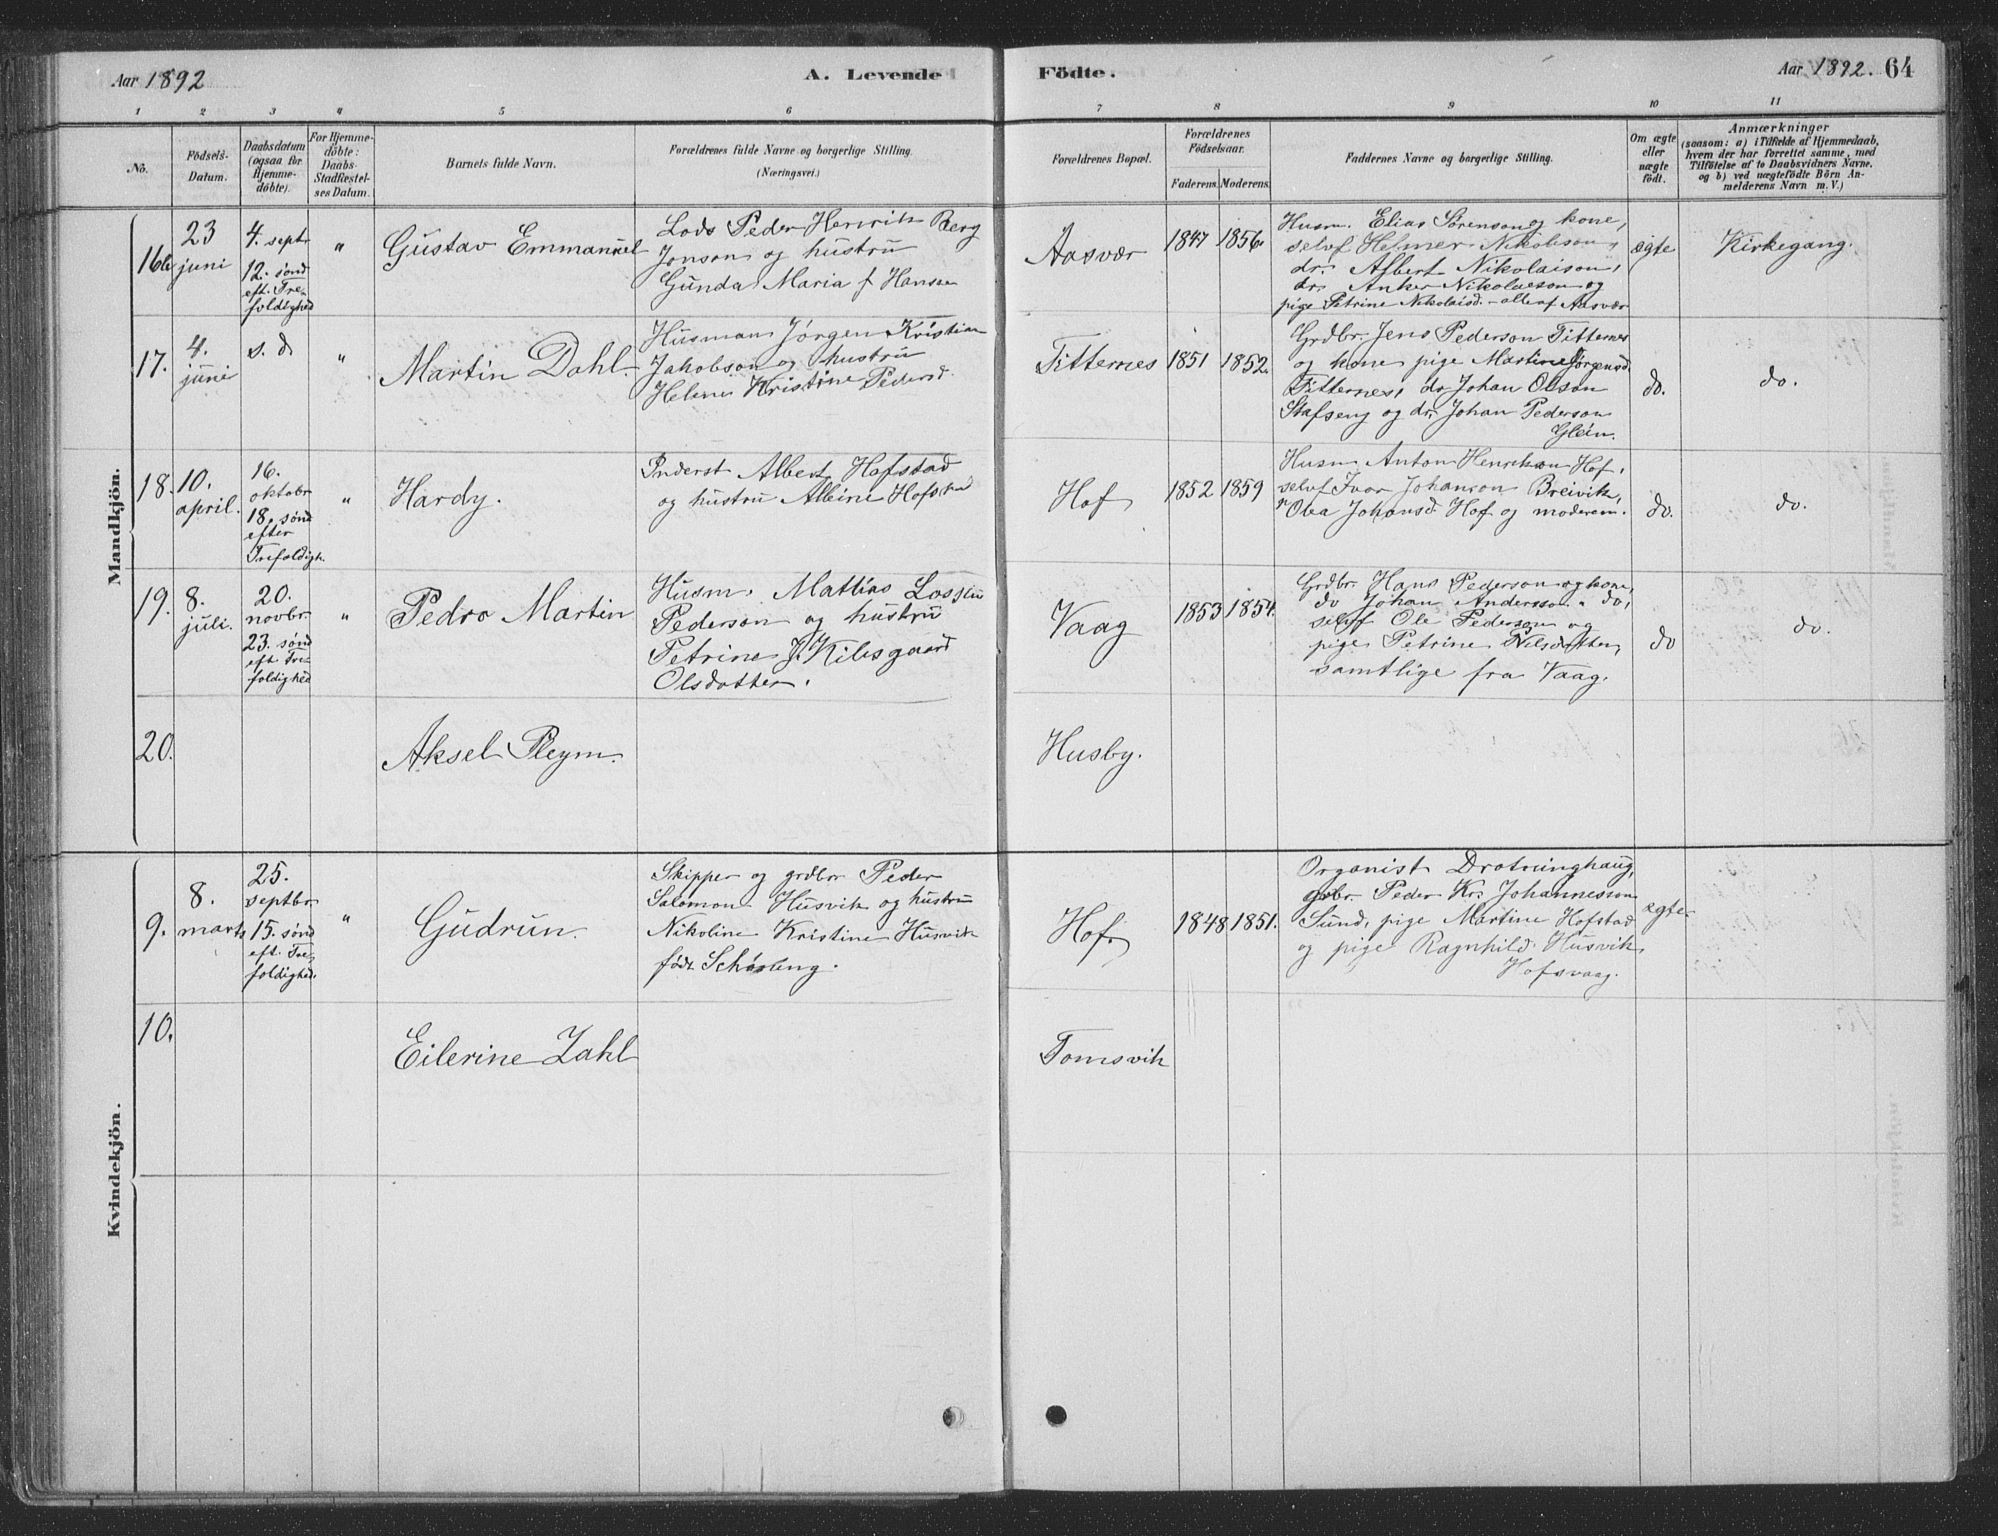 Aar 1892
A. Levende
Födte.
Aar 1892. 64
1 2 3 4 5 6 7 8 9 10 11
No.
Födsels-Datum.
Daabsdatum (ogsaa for Hjemme-döbte).
For Hjemme-döbte: Daabs-Stadfæstel-ses Datum.
Barnets fulde Navn.
Forældrenes fulde Navne og borgerlige Stilling.
(Næringsvei.)
Forældrenes Bopæl.
Forældrenes Födselsaar.
Faderens. Moderens.
Faddernes Navne og borgerlige Stilling.
Om ægte eller uægte födt.
Anmærkninger
(saasom: a) i Tilfælde af Hjemmedaab,
hvem der har forrettet samme, med
Tilföielse af to Daabsvidners Navne,
og b) ved uægtefödte Börn An-
melderens Navn m. V.)
Mandkjön.
16
23 juni
4. septr
12. sønd
eft. Tre-
foldighed
"
Gustav Emmanuel
Lods Peder Henrik Berg
Jonson og hustru
Gunda Maria f Hansen
Aasvær
1847 1856
Husm. Elias Sørenson og kone,
selvf Helmer Nikolaison,
dr. Albert Nikolaison,
dr. Anker Nikolaeson og
pige Petrine Nikolaisd. - alle af Aasvær
ægte
Kirkegang.
17.
4. juni
s. d
"
Martin Dahl.
Husman Jørgen Kristian
Jakobson og hustru
Helene Kristine Pedersd.
Titternes
1851 1852.
Grdbr. Jens Pederson Titternes
og kone pige Martine Jørgensd.
Titternes, do Johan Olson
Stafseng og dr. Johan Pederson
Glein.
do.
do.
18.
10. april.
16.
oktobr
18. sønd
efter
Trefoldigh.
"
Hardy.
Inderst Albert Hofstad
og hustru Albine Hofstad
Hof
1852 1859
Husm Anton Henrikson Hof,
selvf Ivar Johanson Breivik,
Olea Johansd. Hof og moderen.
do.
do.
19.
8. juli.
20.
novbr.
23. sønd
eft Tre-
foldighed
"
Pedro Martin
Husm. Mathias
Pederson og hustru
Petrine J. Kilesgaard
Olsdotter.
Vaag
1853 1854.
Grdbr. Hans Pederson og kone,
do Johan Andersson " do,
selvf Ole Pederson og
pige Petrine Nilsdotter,
samtlige fra Vaag.
do
do.
20.
Aksel Pleym.
Husby.
Kvindekjön.
9.
8. marts
25.
septbr.
15. sønd
eft. Tre-
foldighed.
"
Gudrun.
Skipper og grdbr Peder
Salomon Husvik og hustru
Nikoline Kristine Husvik
født Schjøleng.
Hof.
1848 1851.
Organist Drotninghaug,
grbr. Peder Kr. Johannesson
Sund, pige Martine Hofstad
og pige Ragnhild Husvik
Hofsvaag.
ægte.
10.
Eilerine Zahl
Tomsvik